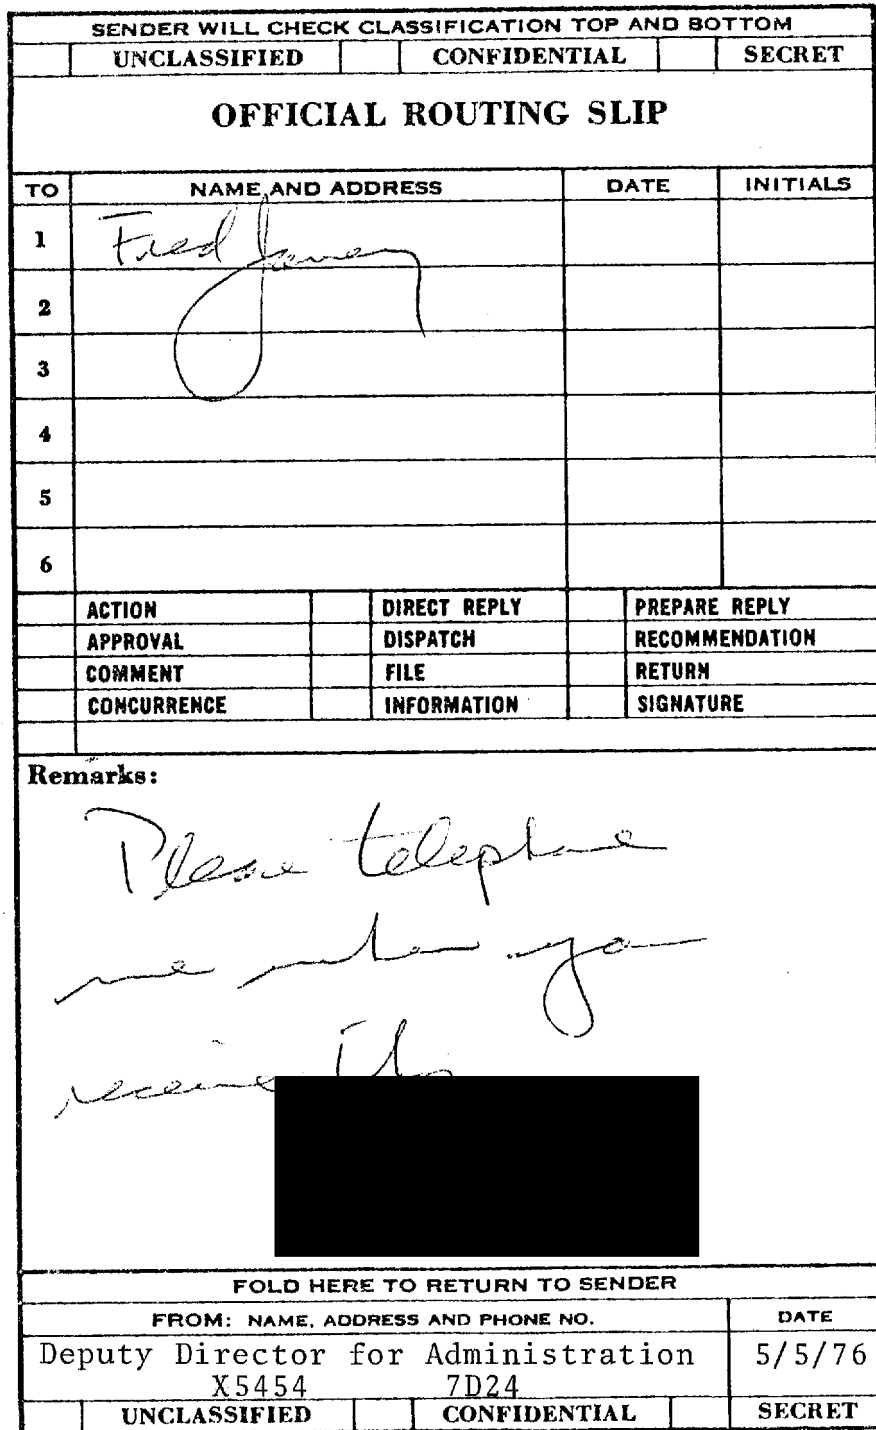 SENDER WILL CHECK CLASSIFICATION TOP AND BOTTOM
UNCLASSIFIED CONFIDENTIAL SECRET
OFFICIAL ROUTING SLIP
TO NAME AND ADDRESS DATE INITIALS
1 Fred Janney
2
3
4
5
6
ACTION DIRECT REPLY PREPARE REPLY
APPROVAL DISPATCH RECOMMENDATION
COMMENT FILE RETURN
CONCURRENCE INFORMATION SIGNATURE
Remarks:
Please telephone
me when you
receive this
FOLD HERE TO RETURN TO SENDER
FROM: NAME, ADDRESS AND PHONE NO. DATE
Deputy Director for Administration 5/5/76
X5454 7D24
UNCLASSIFIED CONFIDENTIAL SECRET